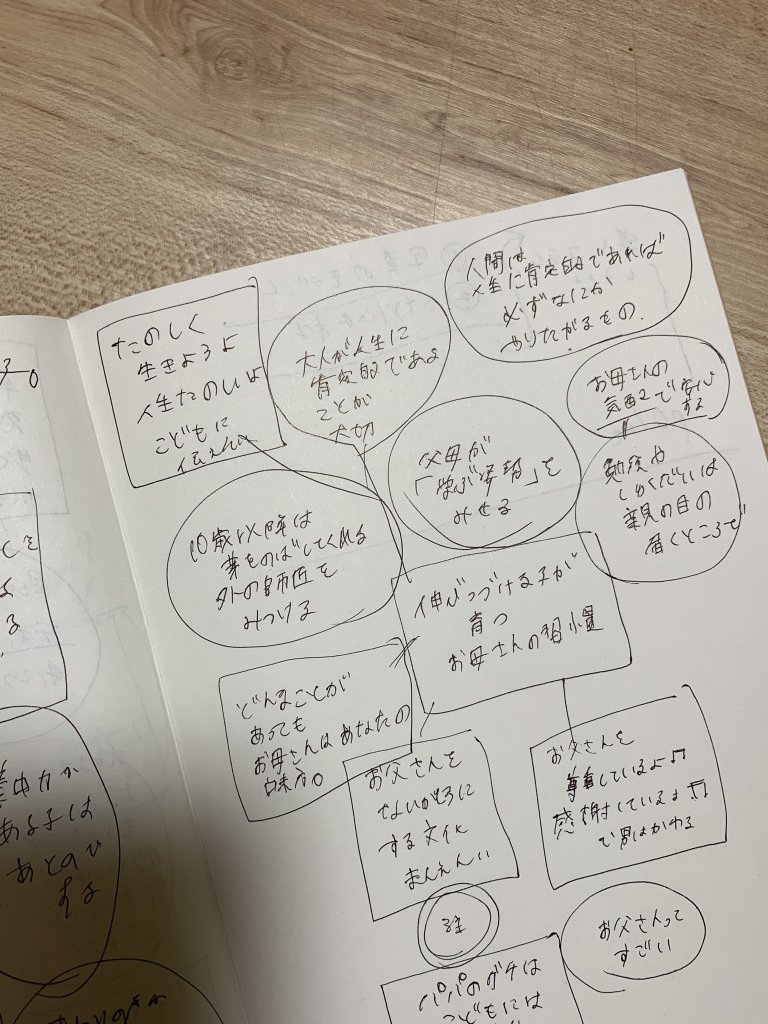 たのしく
生きようよ
人生たのしいよ
こどもに
伝えたい
大人が人生に
肯定的である
ことが
大切
人間は
人生に肯定的であれば
必ずなにか
やりたがるもの.
お母さんの
気配で安心
する
父母が
「学ぶ姿勢」を
みせる
勉強や
しゅくだいは
親の目の
届くところで
10歳以降は
芽をのばしてくれる
外の師匠を
みつける
伸びつづける子が
育つ
お母さんの習慣
どんなことが
あっても
お母さんはあなたの
味方。
お父さんを
ないがしろに
する文化
まんえんい
お父さんを
尊重しているよ♫
感謝しているよ♫
で男はかわる
お父さんって
すごい
パパのグチは
こどもには
集中力が
ある子は
あとのび
する